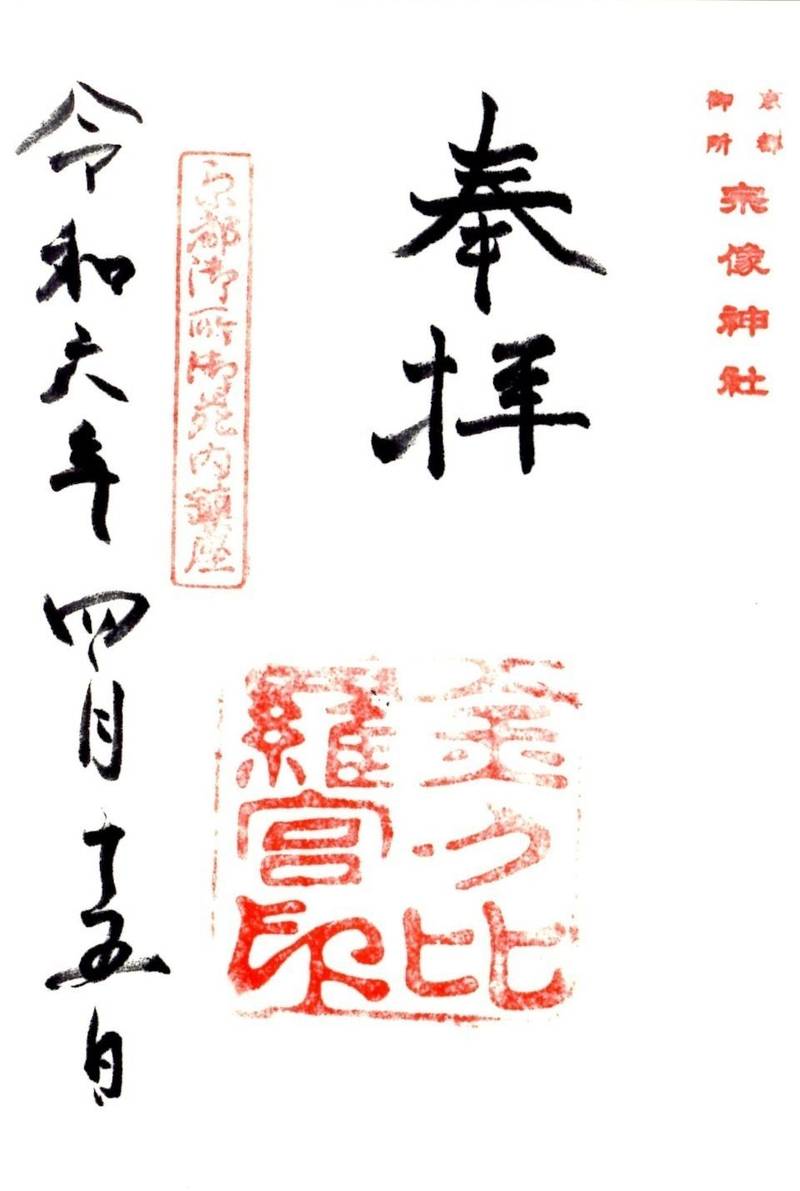 京都
御所
宗像神社
奉拝
金刀比
羅宮印
京都御所御苑内鎮座
令和六年四月十五日